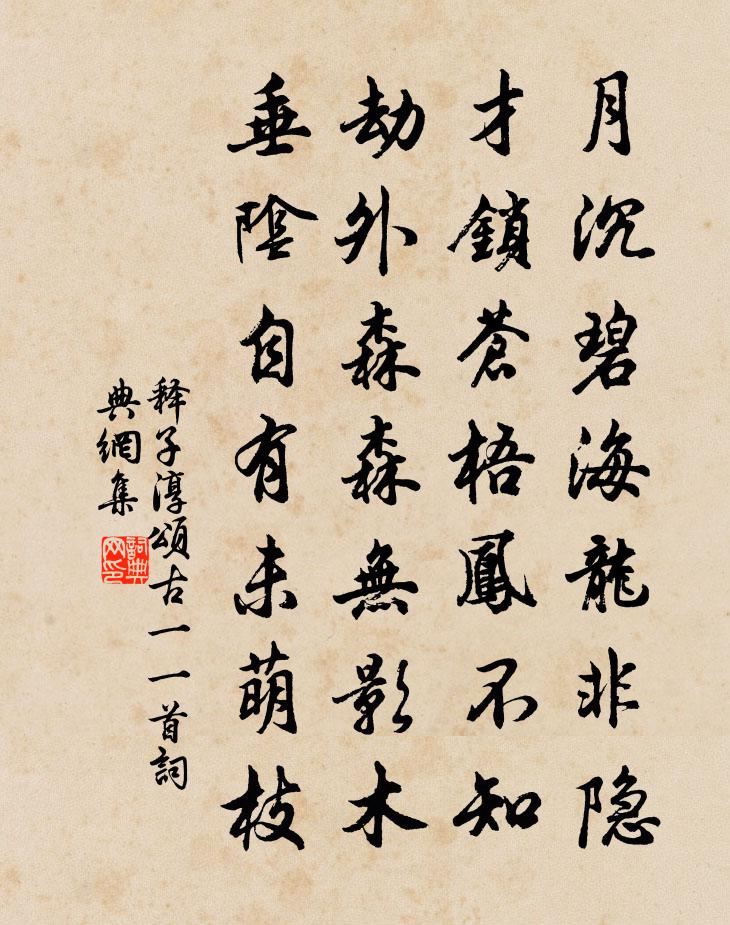 月沉碧海龍非隐
才鎖蒼梧鳳不知
劫外森森無影木
垂陰自有未萌枝
释子淳頌古一一首詞
典網集
詞典网印